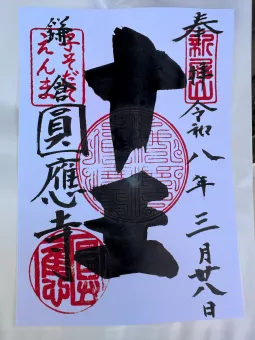 奉拝 令和八年三月廿八日
新居山
十王
子そだて
えんま
鎌倉圓應寺